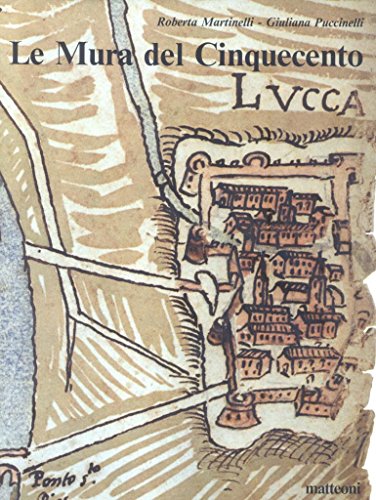 Roberta Martinelli - Giuliana Puccinelli
Le Mura del Cinquecento
LVCCA
Ponto s.to
matteoni